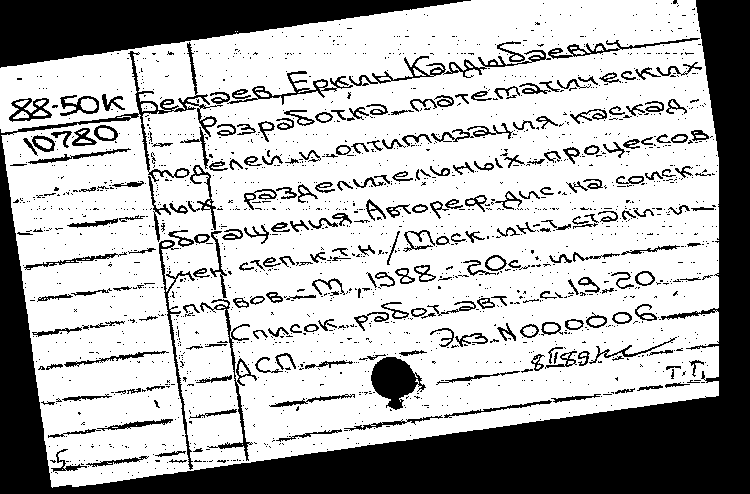 88-50к
10780
Бектаев, Еркин Калдыбаевич
Разработка математических
моделей и оптимизация каскад-
ных разделительных процессов
обогащения: Автореф. дис. на соиск.
учен. степ. к.т.н. / Моск. ин-т стали и
сплавов. - М., 1988. - 20с.: ил.
Список работ авт.: с. 19-20
ДСП Экз. N000006
8 II 89
Т.П.
5